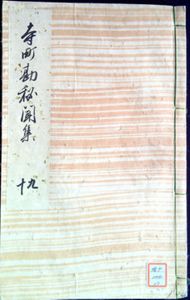 寺町勘秘聞集
十九